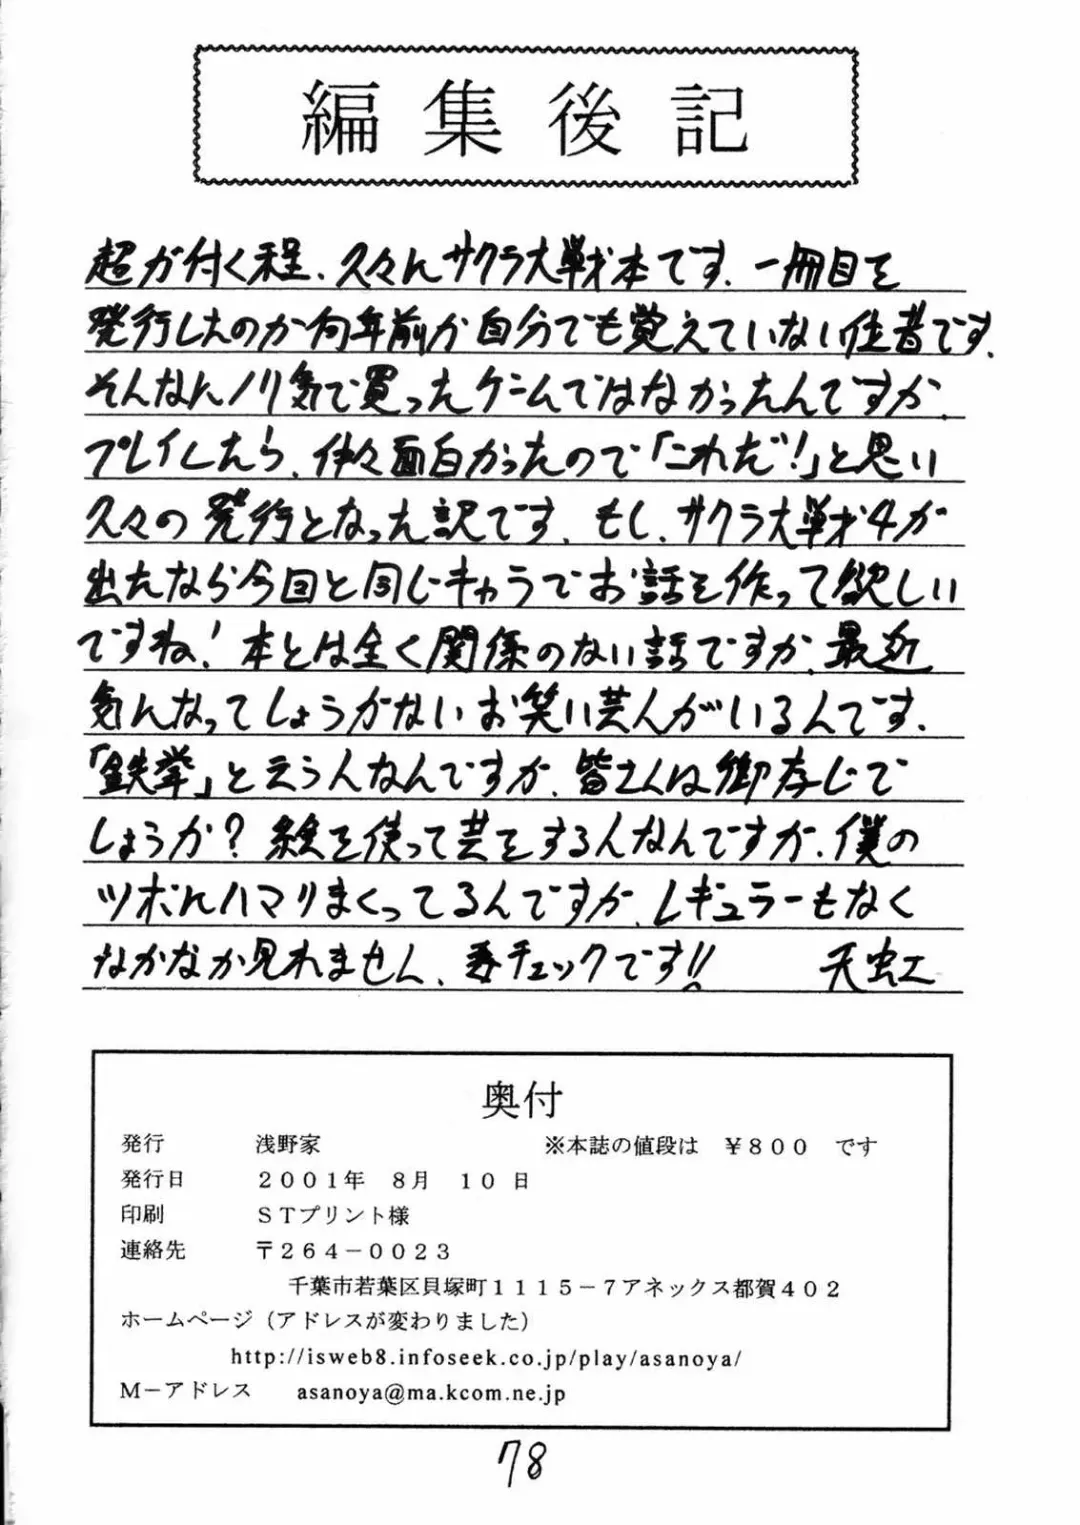 編集後記
超が付く程、久々にサクラ大戦本です。一冊目を
発行したのが何年前か自分でも覚えていない位昔です。
そんなにノリ気で買ったゲームではなかったんですが、
プレイしたら、仲々面白かったので「これだ!」と思い
久々の発行となった訳です。もし、サクラ大戦4が
出たなら今回と同じキャラでお話を作って欲しい
ですね!本とは全く関係のない話ですが、最近
気になってしょうがないお笑い芸人がいるんです。
「鉄拳」と云う人なんですが、皆さんは御存じで
しょうか?絵を使って芸をする人なんですが、僕の
ツボにハマりまくってるんですが、レギュラーもなく
なかなか見れません、要チェックです!! 天虹
奥付
発行 浅野家 ※本誌の値段は ¥800 です
発行日 2001年 8月 10日
印刷 STプリント様
連絡先 〒264-0023
千葉市若葉区貝塚町1115-7アネックス都賀402
ホームページ(アドレスが変わりました)
http://isweb8.infoseek.co.jp/play/asanoya/
M-アドレス asanoya@ma.kcom.ne.jp
78